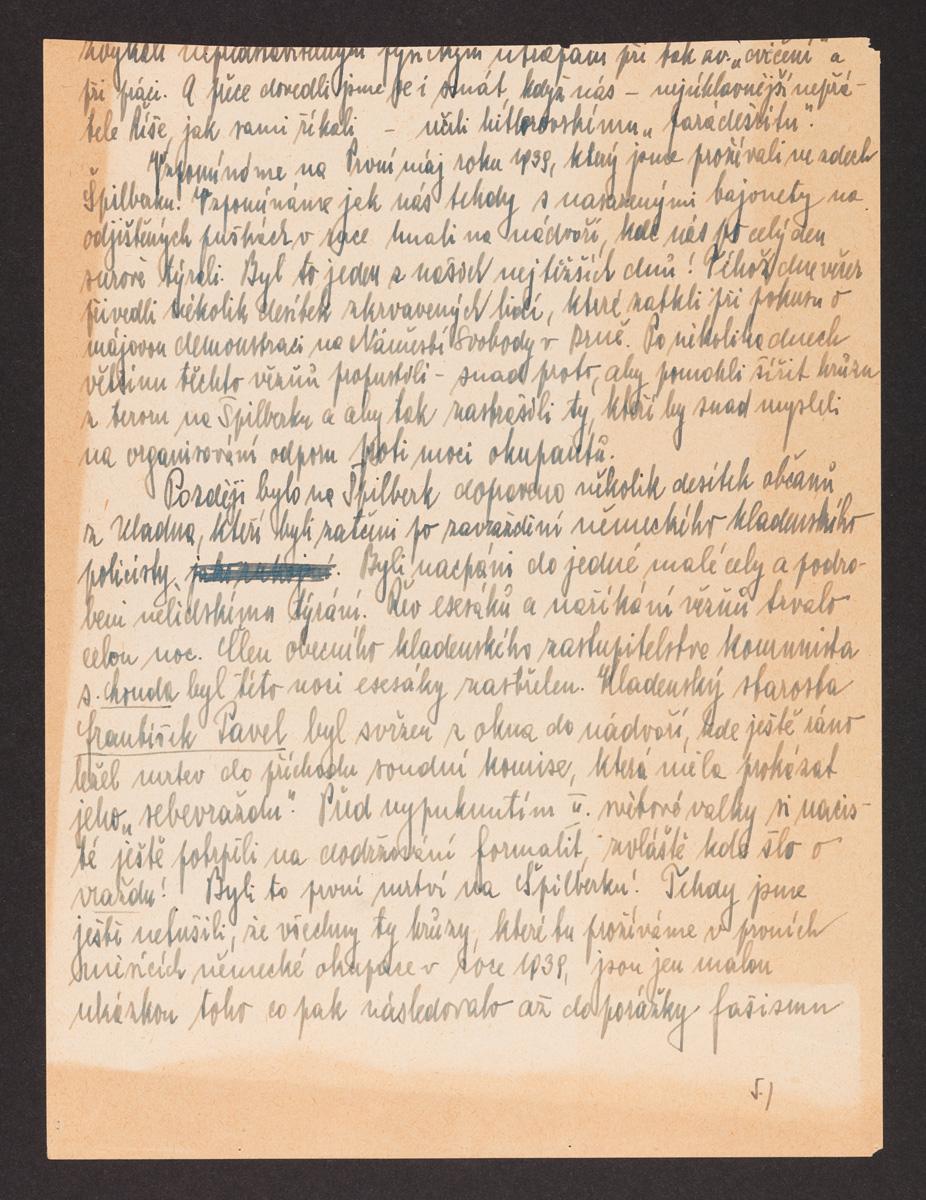 zvykali nepředstavitelným fysickým útrapám při tak zv. „cvičení" a
při práci. A přece dovedli jsme se i smát, když nás – nejúhlavnější nepřá-
tele říše, jak sami říkali – učili hitlerovskému „parádešritu".
Vzpomínáme na První máj roku 1939, který jsme prožívali ve zdech
Špilberku. Vzpomínáme jak nás tehdy s nasazenými bajonety na
odjištěných puškách v ruce hnali na nádvoří, kde nás po celý den
surově týrali. Byl to jeden z našich nejtěžších dnů! Téhož dne večer
přivedli několik desítek zkrvavených lidí, které zatkli při pokusu o
májovou demonstraci na Náměstí Svobody v Brně. Po několika dnech
většinu těchto vězňů propustili – snad proto, aby pomohli šířit hrůzu
z teroru na Špilberku a aby tak zastrašili ty, kteří by snad mysleli
na organisování odporu proti moci okupantů.
Později bylo na Špilberk dopraveno několik desítek občanů
z Kladna, kteří byli zatčeni po zavraždění německého kladenského
policisty. Byli nacpáni do jedné malé cely a podro-
beni nelidskému týrání. Řev esesáků a naříkání vězňů trvalo
celou noc. Člen obecního kladenského zastupitelstva komunista
s. Houda byl této noci esesáky zastřelen. Kladenský starosta
František Pavel byl svržen z okna do nádvoří, kde ještě ráno
ležel mrtev do příchodu soudní komise, která měla prokázat
jeho „sebevraždu". Před vypuknutím II. světové války si nacis-
té ještě potrpěli na dodržování formalit, zvláště kde šlo o
vraždu! Byli to první mrtví na Špilberku! Tehdy jsme
ještě netušili, že všechny ty hrůzy, které tu prožíváme v prvních
měsících německé okupace v roce 1939, jsou jen malou
ukázkou toho co pak následovalo až do porážky fašismu
5.)